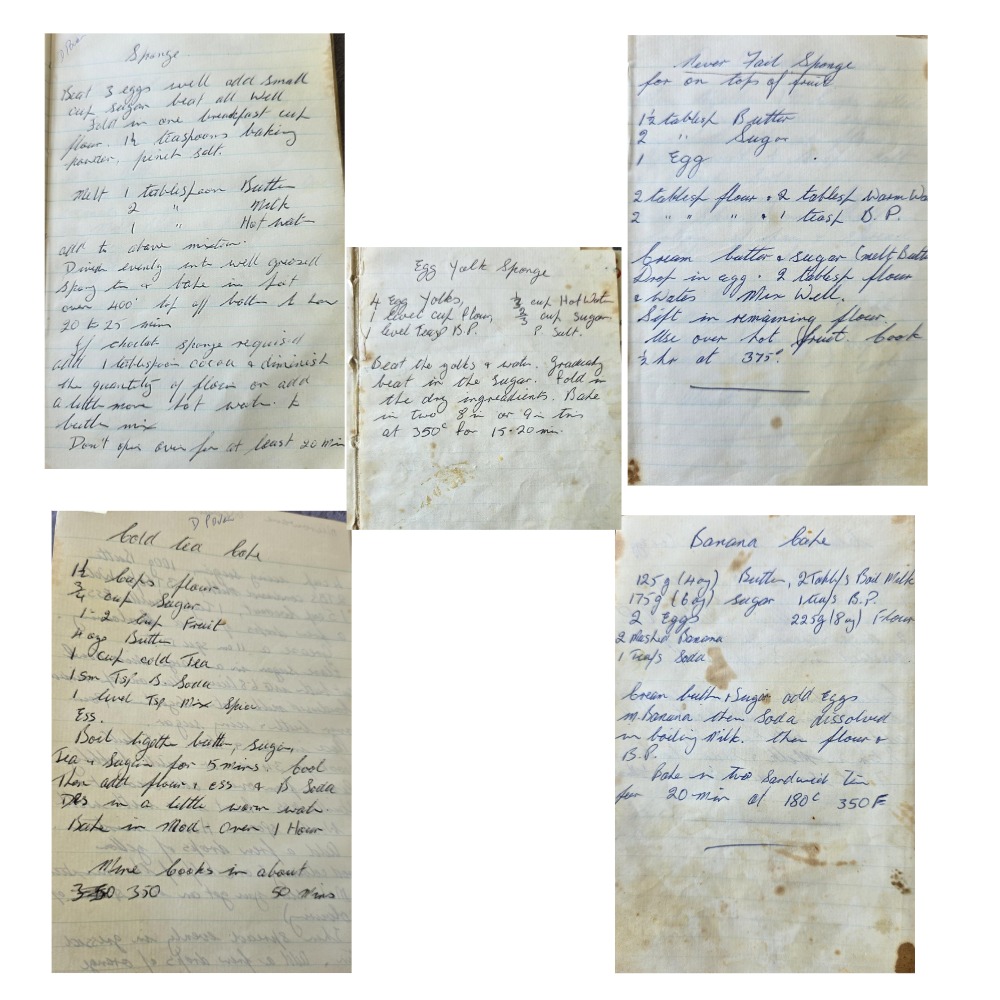 Sponge
Beat 3 eggs well add small
cup sugar beat all well
Fold in one breakfast cup
flour. 1½ teaspoons baking
powder, pinch salt.
Melt 1 tablespoon Butter
2 " Milk
1 " Hot water
add to above mixture.
Divide evenly into well greased
spong tin & bake in hot
oven 400° top off bottom to low
20 to 25 mins
If choclat sponge required
add 1 tablespoon cocoa & diminish
the quantity of flour or add
a little more hot water to
butter mix
Don't open oven for at least 20 min
Never Fail Sponge
for on tops of fruit
1½ tablesp Butter
2 " Sugar
1 Egg
2 tablesp flour & 2 tablesp Warm Wa
2 " " " & 1 teasp B.P.
Cream butter & sugar (melt Butte
Drop in egg & 2 tablesp flour
& Water Mix Well.
Sift in remaining flour
Use over hot fruit. Cook
½ hr at 375°
Egg Yolk Sponge
4 Egg Yolks, ⅓ cup Hot Water
1 level cup flour, ⅔ cup sugar
1 level Teasp B.P. P. Salt.
Beat the yolks & water. Gradually
beat in the Sugar. Fold in
the dry ingredients. Bake
in two 8 in or 9 in tins
at 350° for 15-20 min.
Cold tea Cake
1½ Cups flour
¾ cup Sugar
1-2 Cup Fruit
4 ozs Butter
1 cup cold Tea
1 Sm Tsp B. Soda
1 level Tsp Mix Spice
Ess.
Boil together butter, sugar,
Tea & Sugar for 5 mins Cool
Then add flour & ess & B Soda
Dis in a little warm water
Bake in Mod- Oven 1 Hour
Mine Cooks in about
350 50 Mins
Banana Cake
125g (4oz) Butter, 2 Tabl/s Boil Milk
175g (6oz) Sugar 1 tea/s B.P.
2 Eggs 225g (8oz) Flour
2 Mashed Banana
1 Tea/s Soda
Cream butter & Sugar add Eggs
m. Banana then Soda dissolved
in boiling Milk. then flour &
B.P.
Bake in two Sandwich Tin
for 20 min at 180c 350F